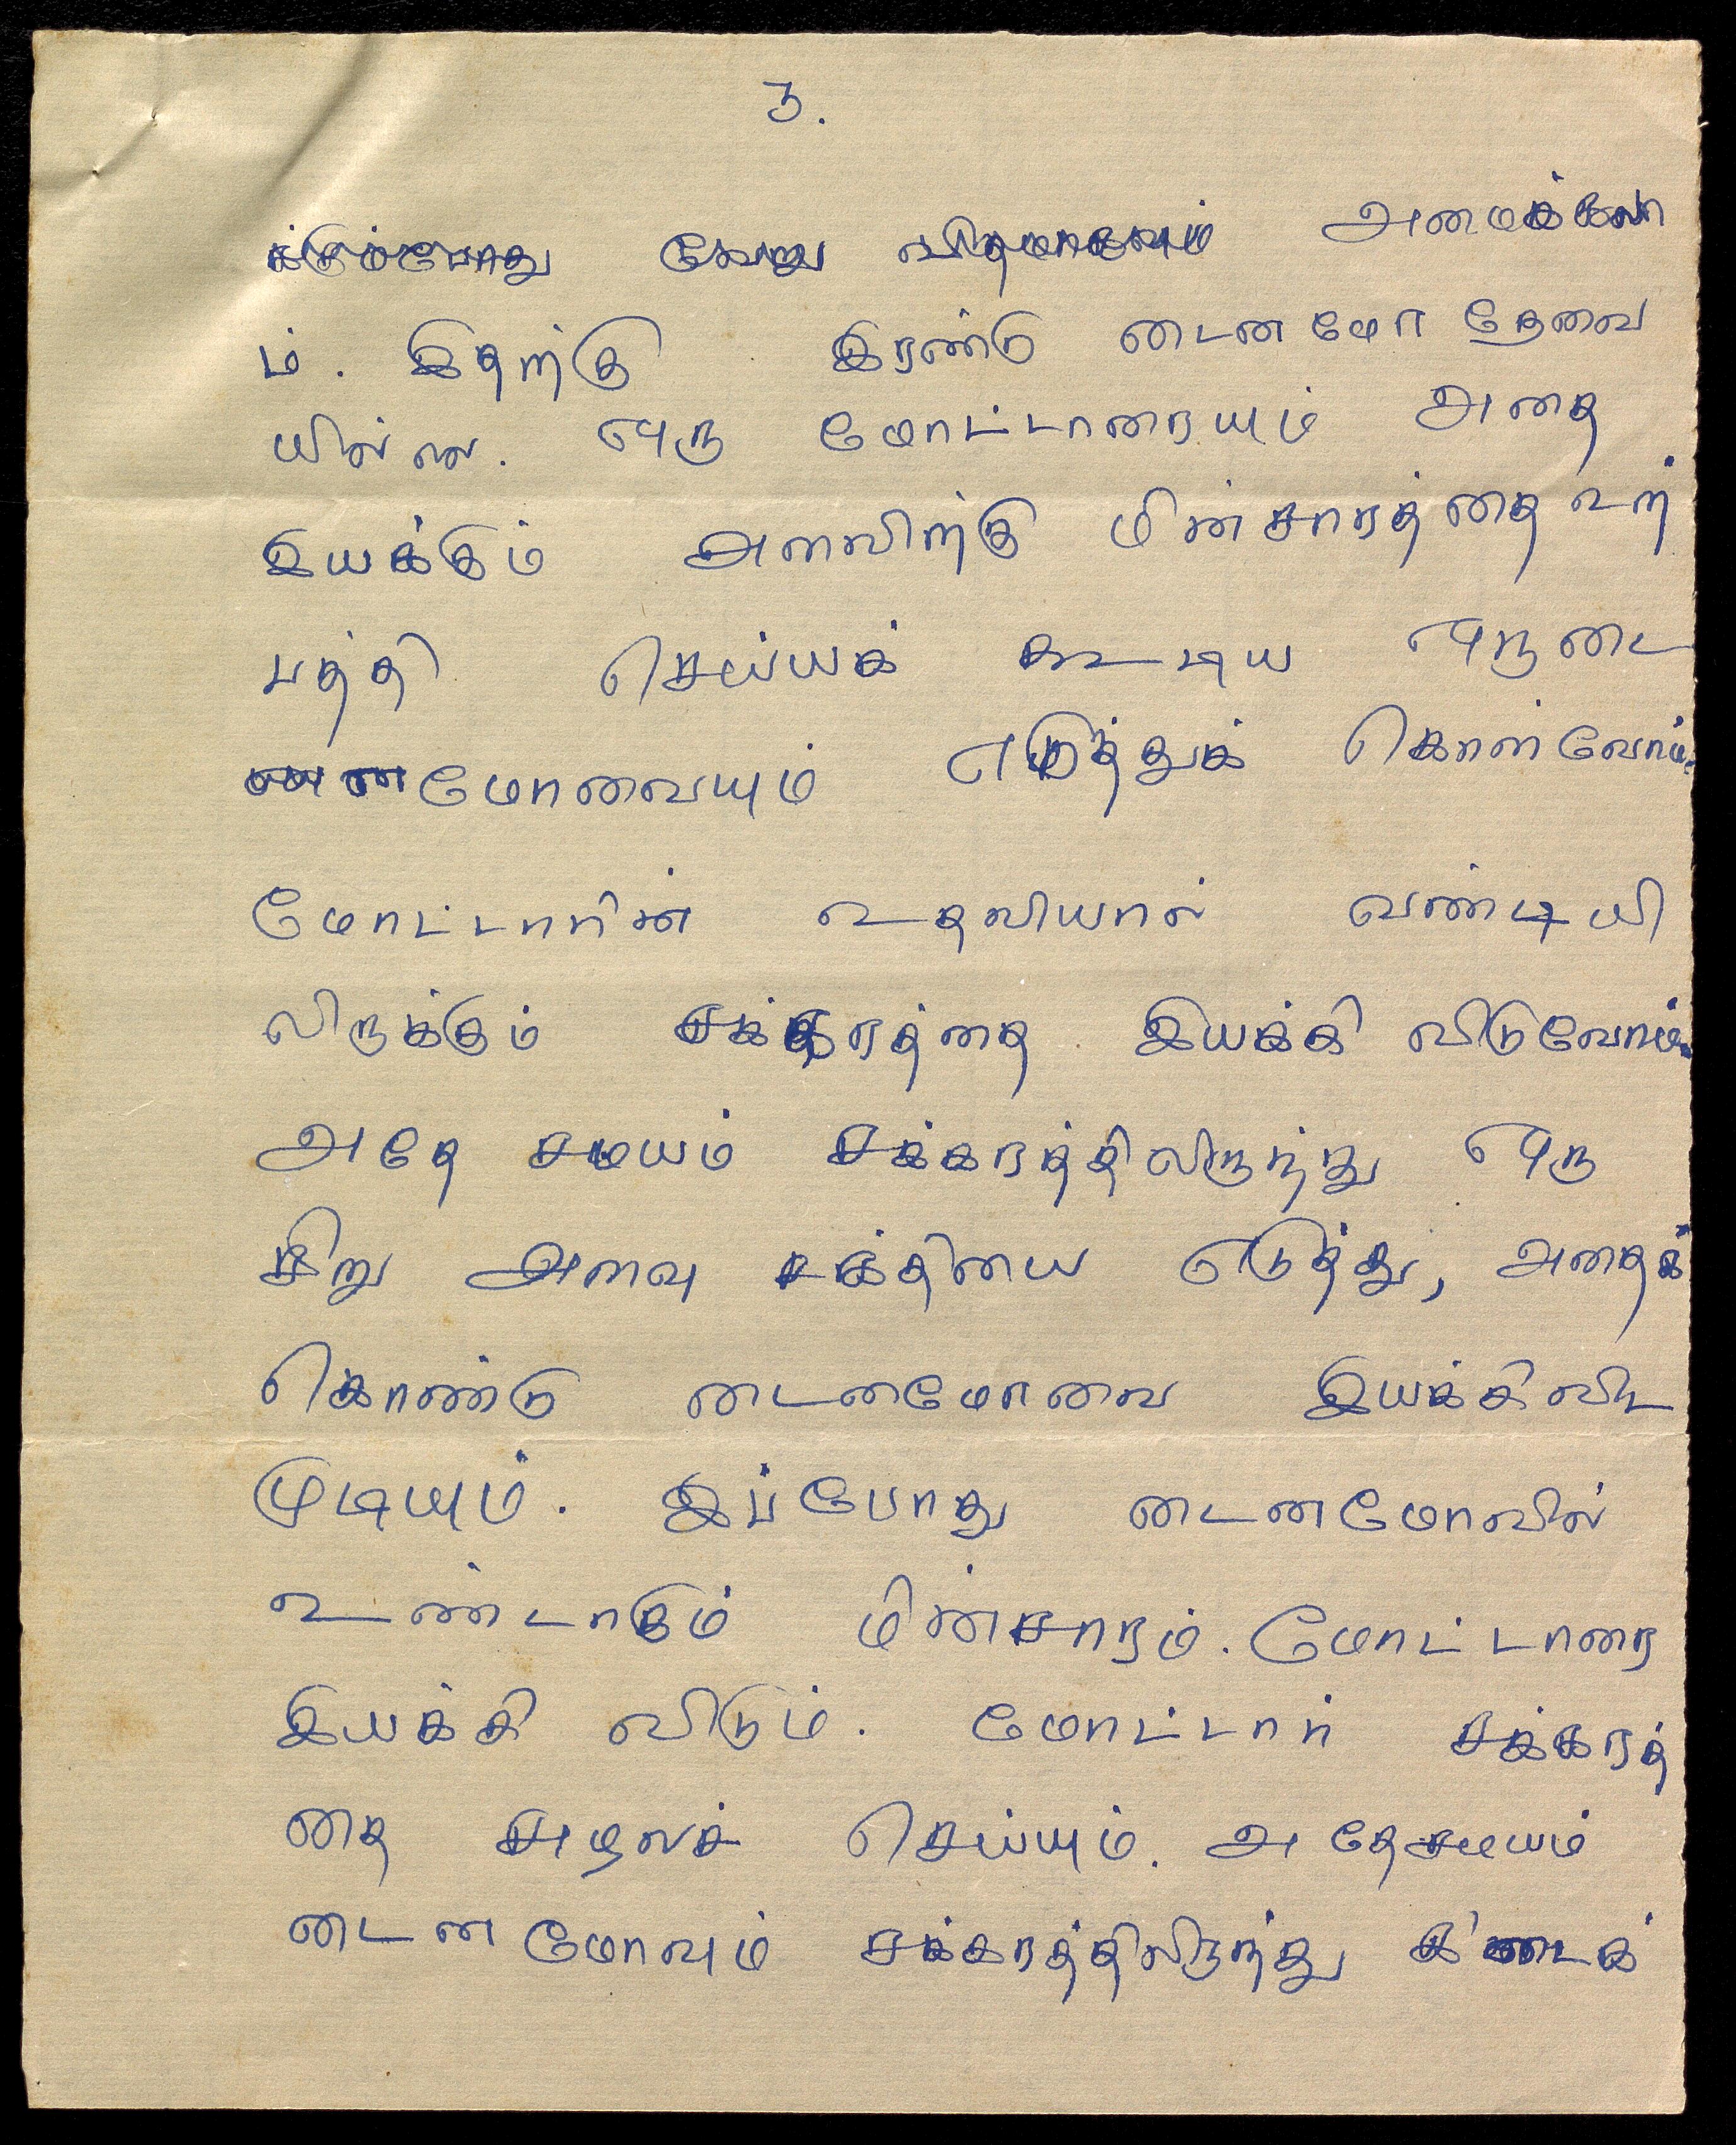 3.
க்கும்போது வேறு விதமாகவும் அமைக்கலா
ம். இதற்கு இரண்டு டைனமோ தேவை
யில்லை. ஒரு மோட்டாரையும் அதை
இயக்கும் அளவிற்கு மின்சாரத்தை உற்
பத்தி செய்யக் கூடிய ஒரு டை
னமோவையும் எடுத்துக் கொள்வோம்.
மோட்டாரின் உதவியால் வண்டியி
லிருக்கும் சக்கரத்தை இயக்கி விடுவோம்.
அதே சமயம் சக்கரத்திலிருந்து ஒரு
சிறு அளவு சக்தியை எடுத்து, அதைக்
கொண்டு டைனமோவை இயக்கிவிட
முடியும். இப்போது டைனமோவில்
உண்டாகும் மின்சாரம். மோட்டாரை
இயக்கி விடும். மோட்டார் சக்கரத்
தை சுழலச் செய்யும். அதேசமயம்
டைனமோவும் சக்கரத்திலிருந்து கிடைக்